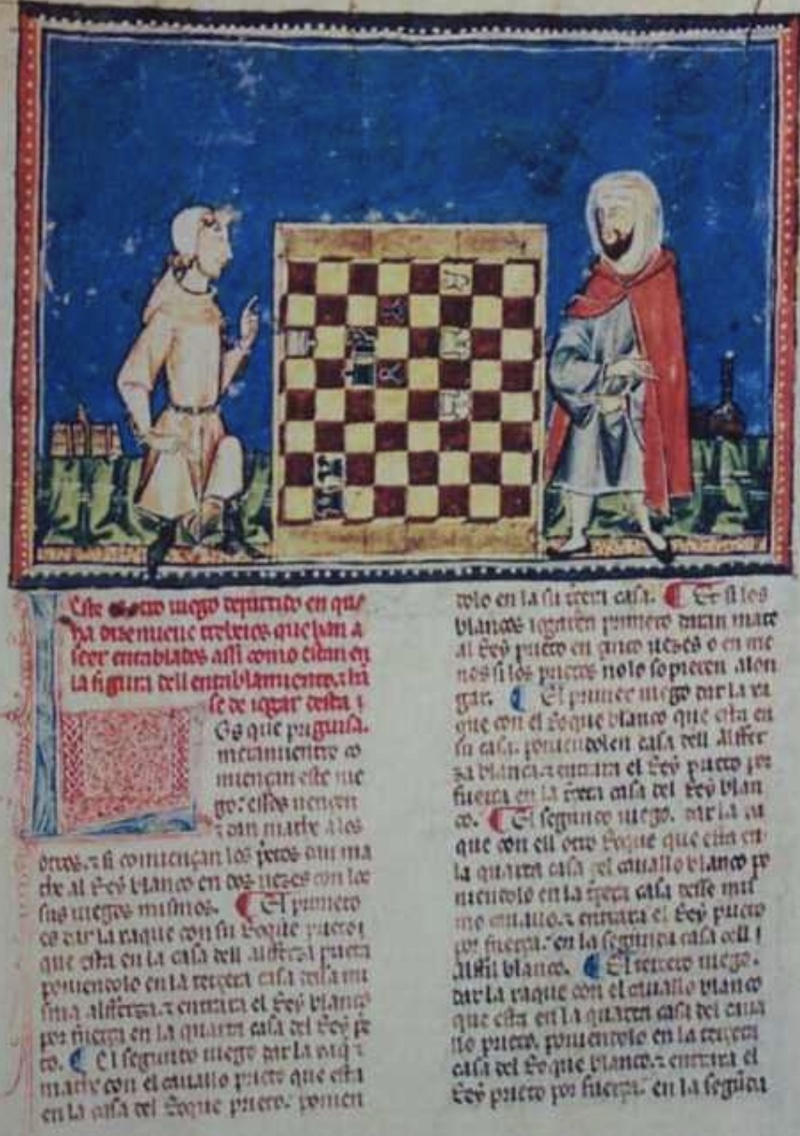 Este otro iuego departido en que
ha diznueue trebeios que han a
seer entablados assi como estan en
la figura dell entablamiento. ⁊ ha
se de iogar desta
guisa.
Os que pri
meramientre co
miençan este iue
go: essos uencen
⁊ dan mathe alos
otros. ⁊ si comiençan los prietos dan ma
the al Rey blanco en dos uezes con los
sus iuegos mismos. ¶ El primero
es dar la xaque con su Roque prieto
que esta en la casa dell alfferza prieta
poniendolo en la tercera casa dessa mis
ma alfferza. ⁊ entrara el Rey blanco
por fuerça en la quarta casa del Rey prie
to. ¶ El segundo iuego dar la xaq ⁊
mathe con el cauallo prieto que esta
en la casa del Roque prieto. ponien
dolo en la su tercera casa. ¶ Et si los
blancos iogaren primero daran mate
al Rey prieto en cinco uezes o en me
nos si los prietos no lo sopieren alon
gar. ¶ El primer iuego dar la xa
que con el Roque blanco que esta en
su casa. poniendol en casa dell alffer
za blanca. ⁊ entrara el Rey prieto por
fuerça en la tercera casa del Rey blan
co. ¶ El segundo iuego. dar la xa
que con ell otro Roque que esta en
la quarta casa del cauallo blanco po
niendolo en la tercera casa desse mis
mo cauallo. ⁊ entrara el Rey prieto
por fuerça. en la segunda casa dell
alffil blanco. ¶ El tercero iuego.
dar la xaque con el cauallo blanco
que esta en la quarta casa del caua
llo prieto. poniendolo en la tercera
casa del Roque blanco. ⁊ entrara el
Rey prieto por fuerça. en la segunda